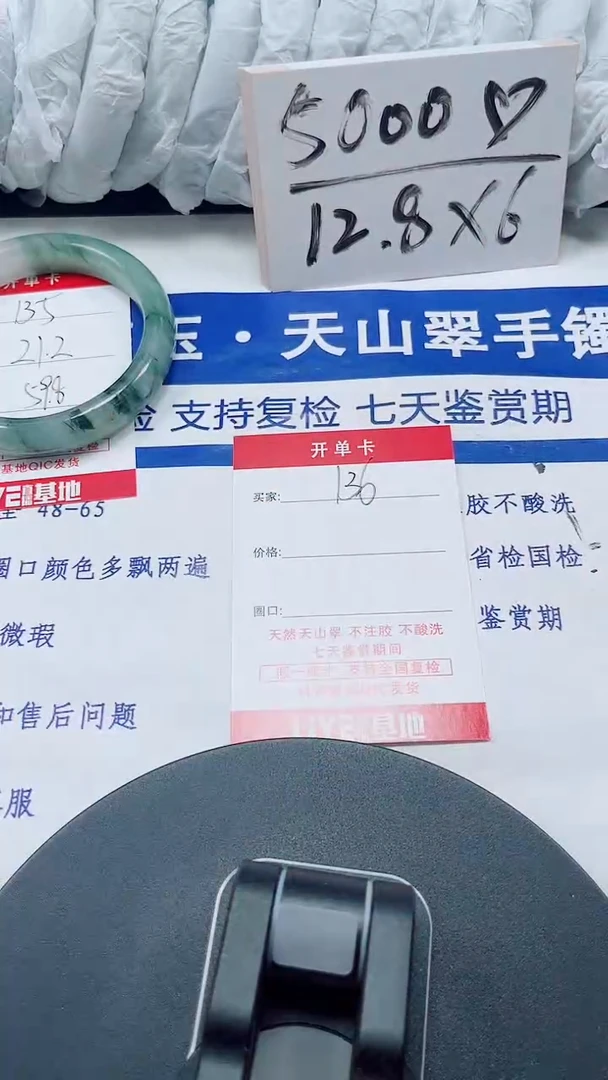 5000♡
12.8×6
开单卡
135
21.2
59.8
基地QIC发货
YE基地
玉·天山翠手镯
检 支持复检 七天鉴赏期
48-65
圈口颜色多飘两遍
微瑕
和售后问题
客服
开单卡
买家: 136
价格:
圈口:
天然天山翠 不注胶 不酸洗
七天鉴赏期间
支持全国复检
基地
胶不酸洗
省检国检
鉴赏期